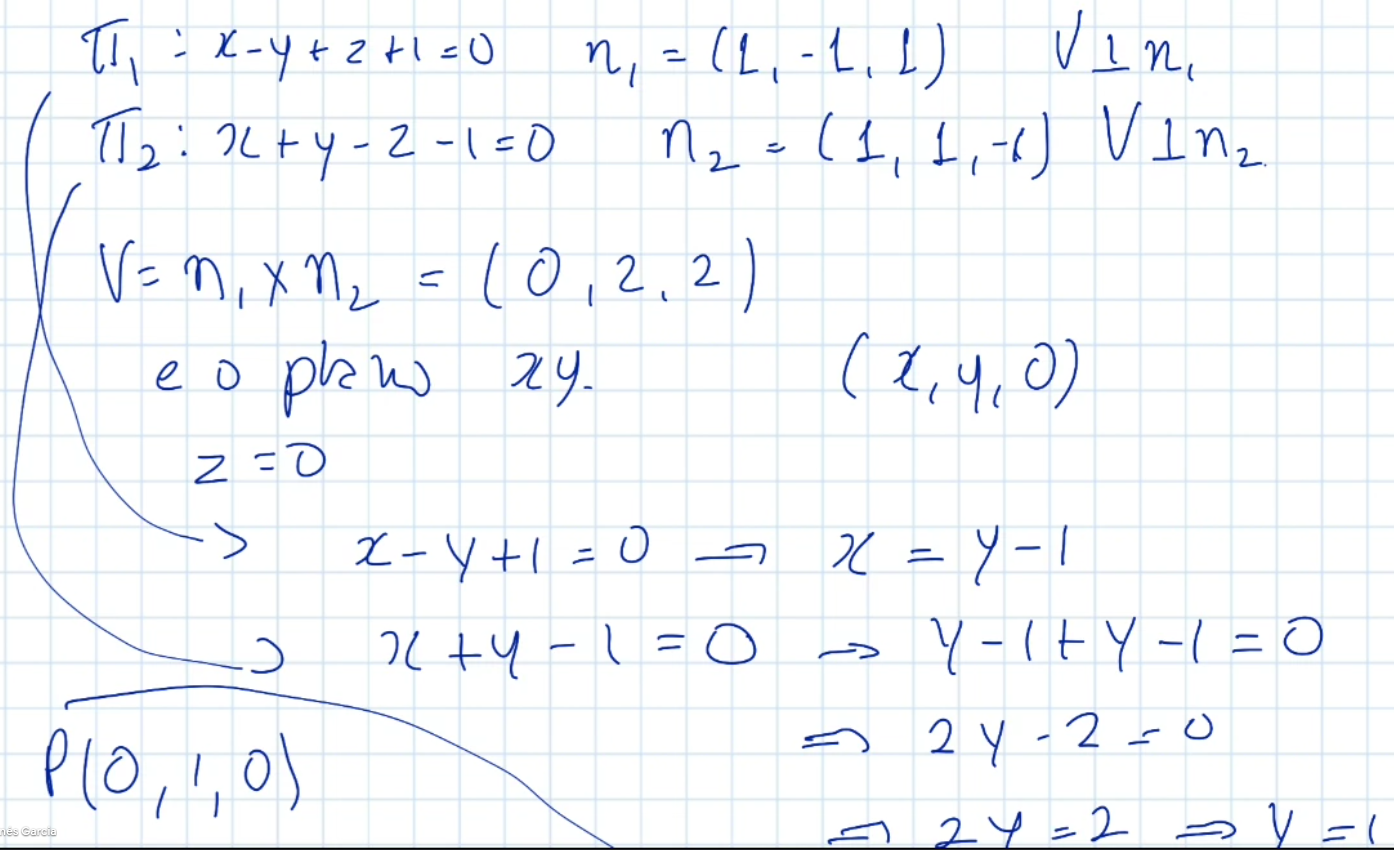 π₁ : x-y+z+1=0 n₁ = (1,-1,1) V⊥n₁
π₂ : x+y-z-1=0 n₂ = (1,1,-1) V⊥n₂.
V= n₁xn₂ = (0,2,2)
e o plano xy. (x,y,0)
z=0
x-y+1=0 ⇒ x = y-1
x+y-1=0 → y-1+y-1=0
⇒ 2y-2=0
P(0,1,0)
⇒ 2y=2 ⇒ y=1
nês García